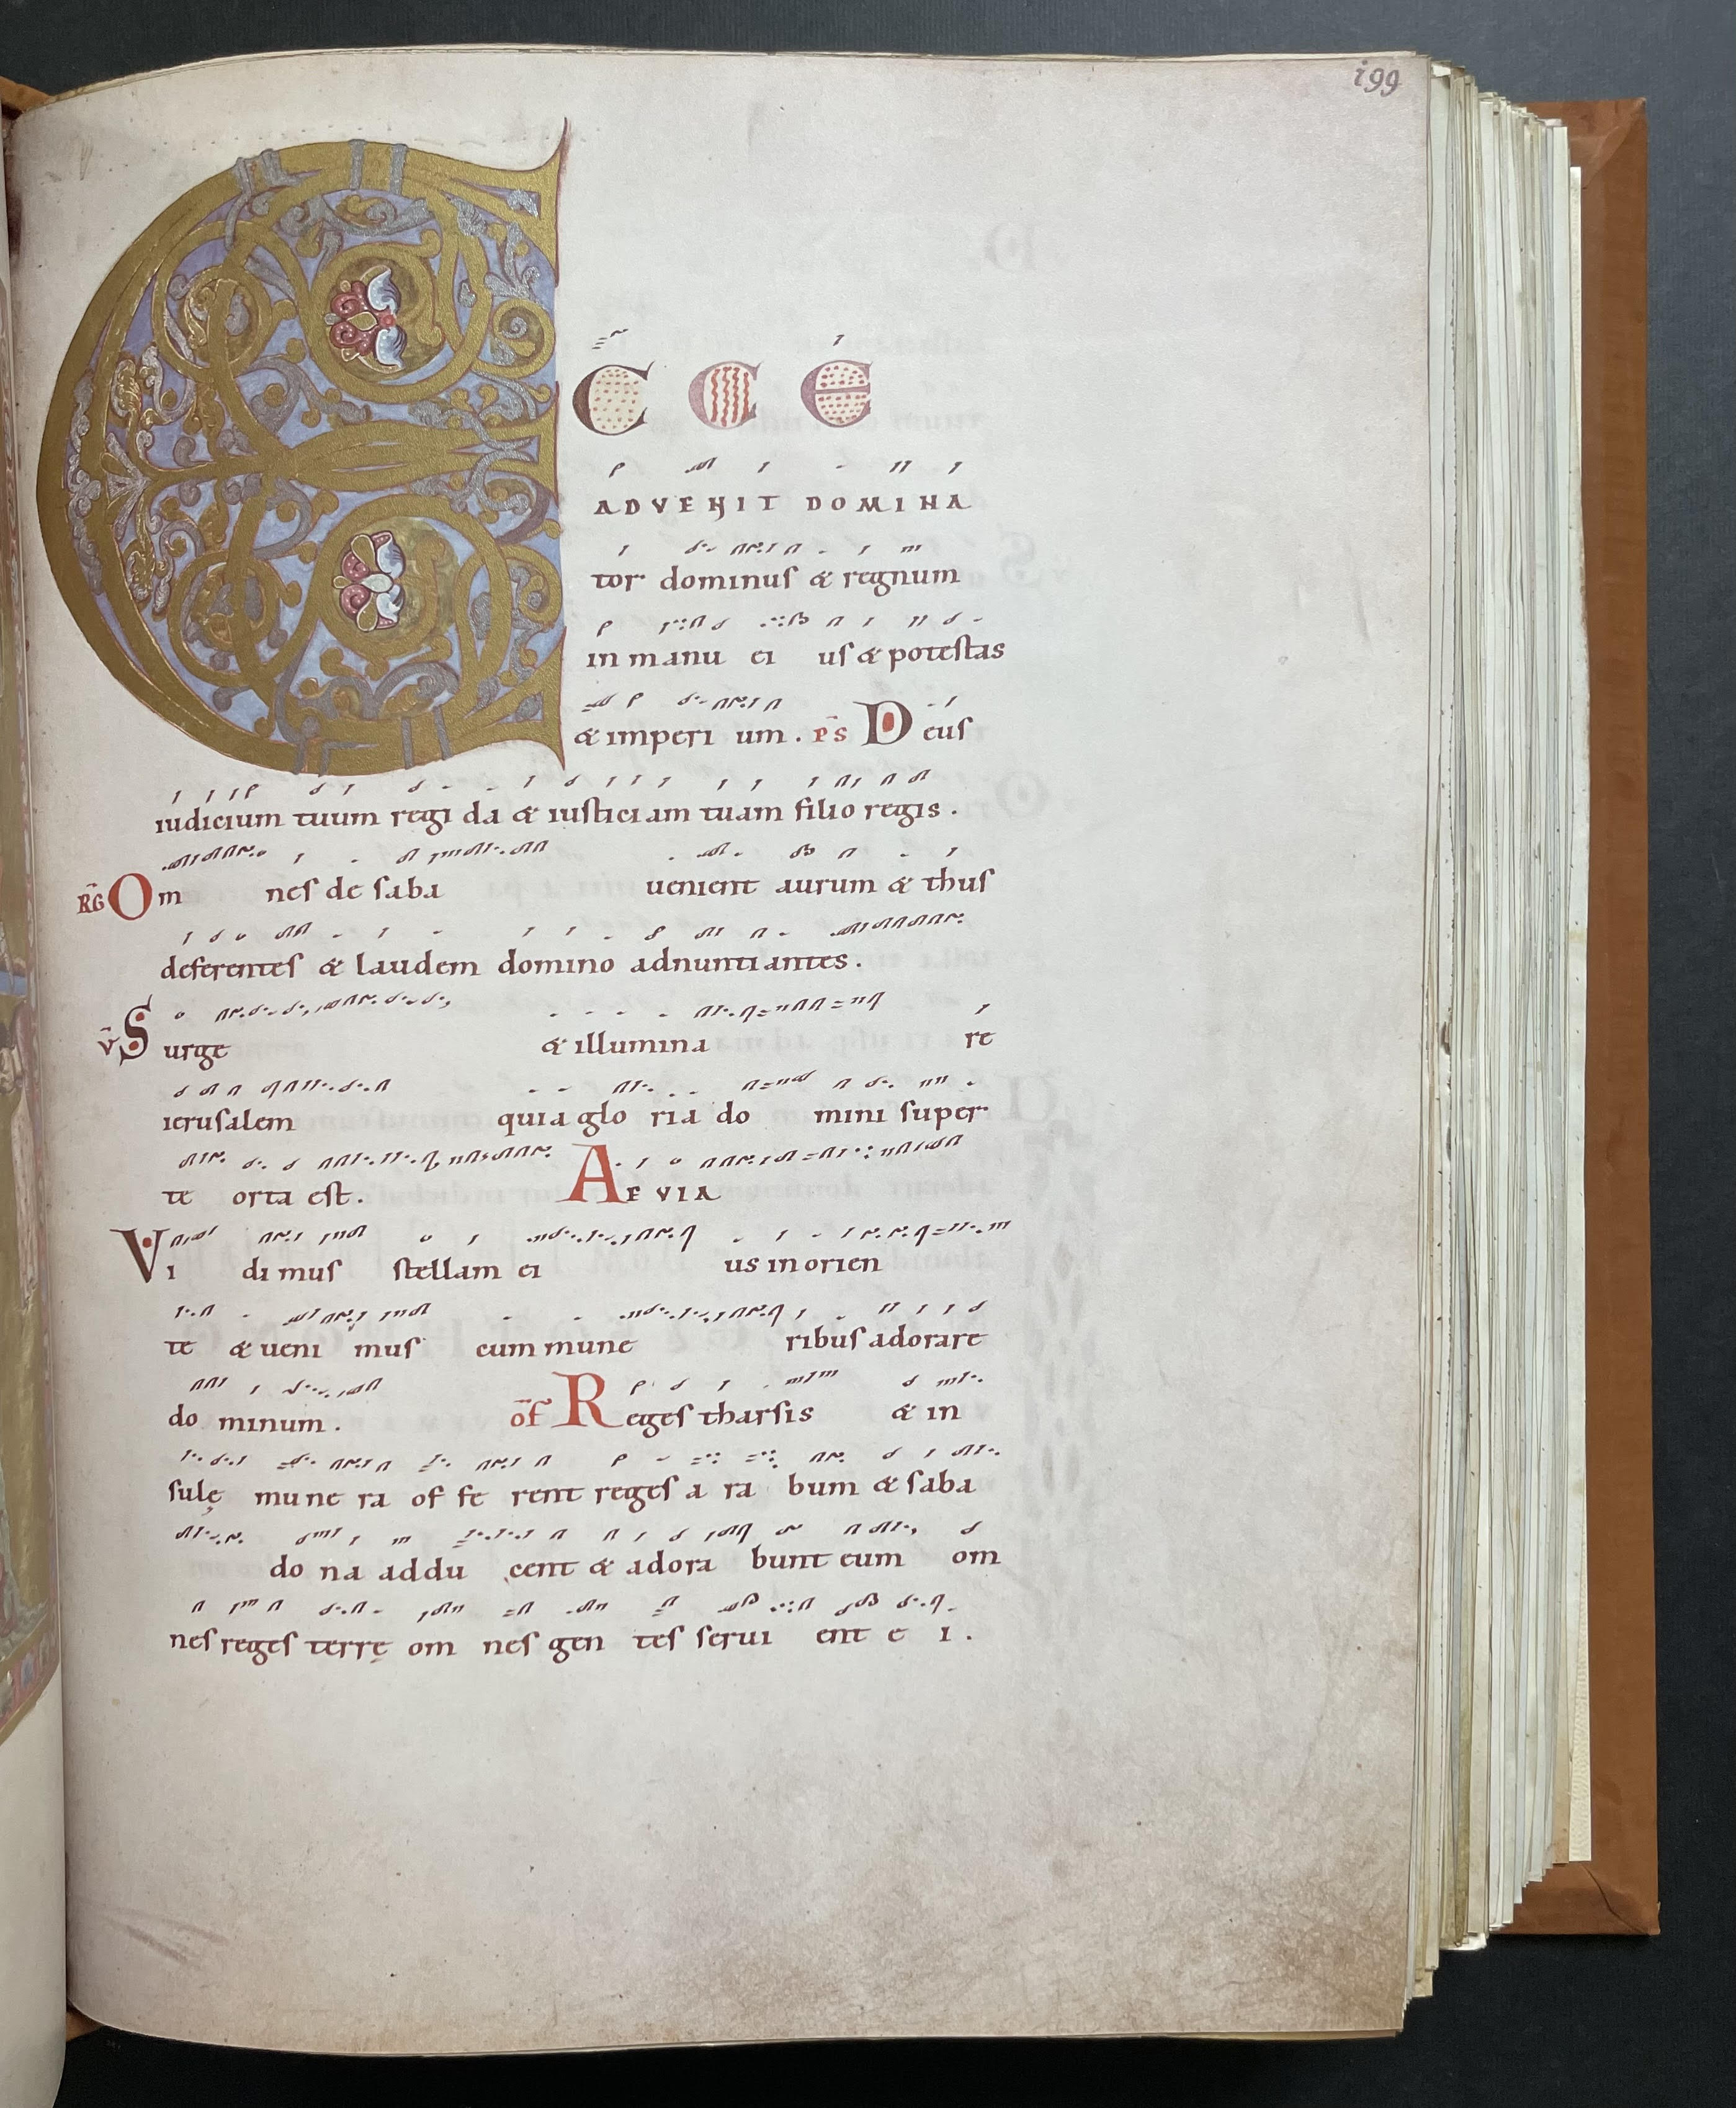 i99
E CCE
ADVENIT DOMINA
tor dominuſ & regnum
in manu ei uſ & poteſtas
& imperi um . p̄s Deuſ
iudicium tuum regi da & iuſticiam tuam filio regis .
R̄G Om neſ de ſaba uenient aurum & thuſ
deferenteſ & laudem domino adnuntiantes .
v̄ Surge & illumina re
ieruſalem quia glo ria do mini ſuper
te orta eſt . AEVIA
Vi di muſ ſtellam ei us in orien
te & ueni muſ cum mune ribuſ adorare
do minum . of̄ Regeſ tharſis & in
ſulę mune ra of fe rent regeſ a ra bum & ſaba
do na addu cent & adora bunt eum om
neſ regeſ terrę om neſ gen teſ ſerui ent e i .